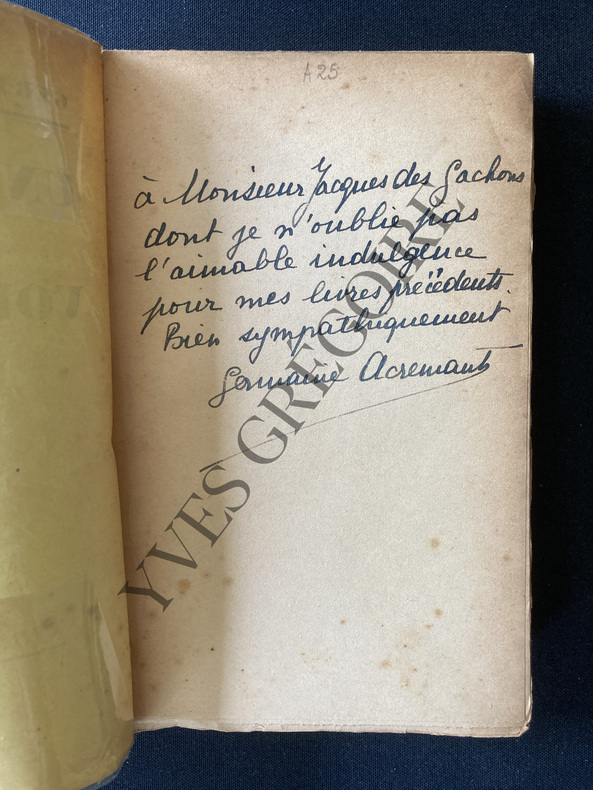 A25
à Monsieur Jacques des Gachons
dont je n'oublie pas
l'aimable indulgence
pour mes livres précédents.
Bien sympathiquement
Germaine Acremant
YVES GRÉGOIRE